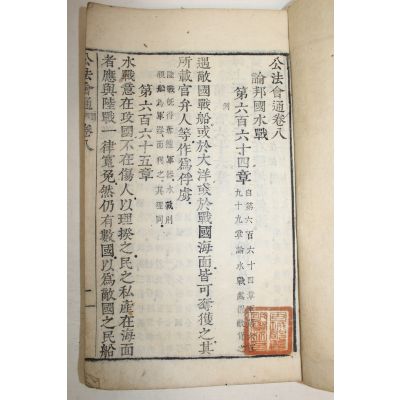 公法會通卷八
論邦國水戰
第六百六十四章 自第六百六十四章至
九十九章論水戰
例
遇敵國戰船或於大洋或於戰國海面皆可奪獲之其
所載官弁人等作爲俘虜
第六百六十五章
水戰意在攻國不在傷人以理揆之民之私產在海面
者應與陸戰一律寬免然仍有數國以爲敵國之民船
公法會通 卷八
一